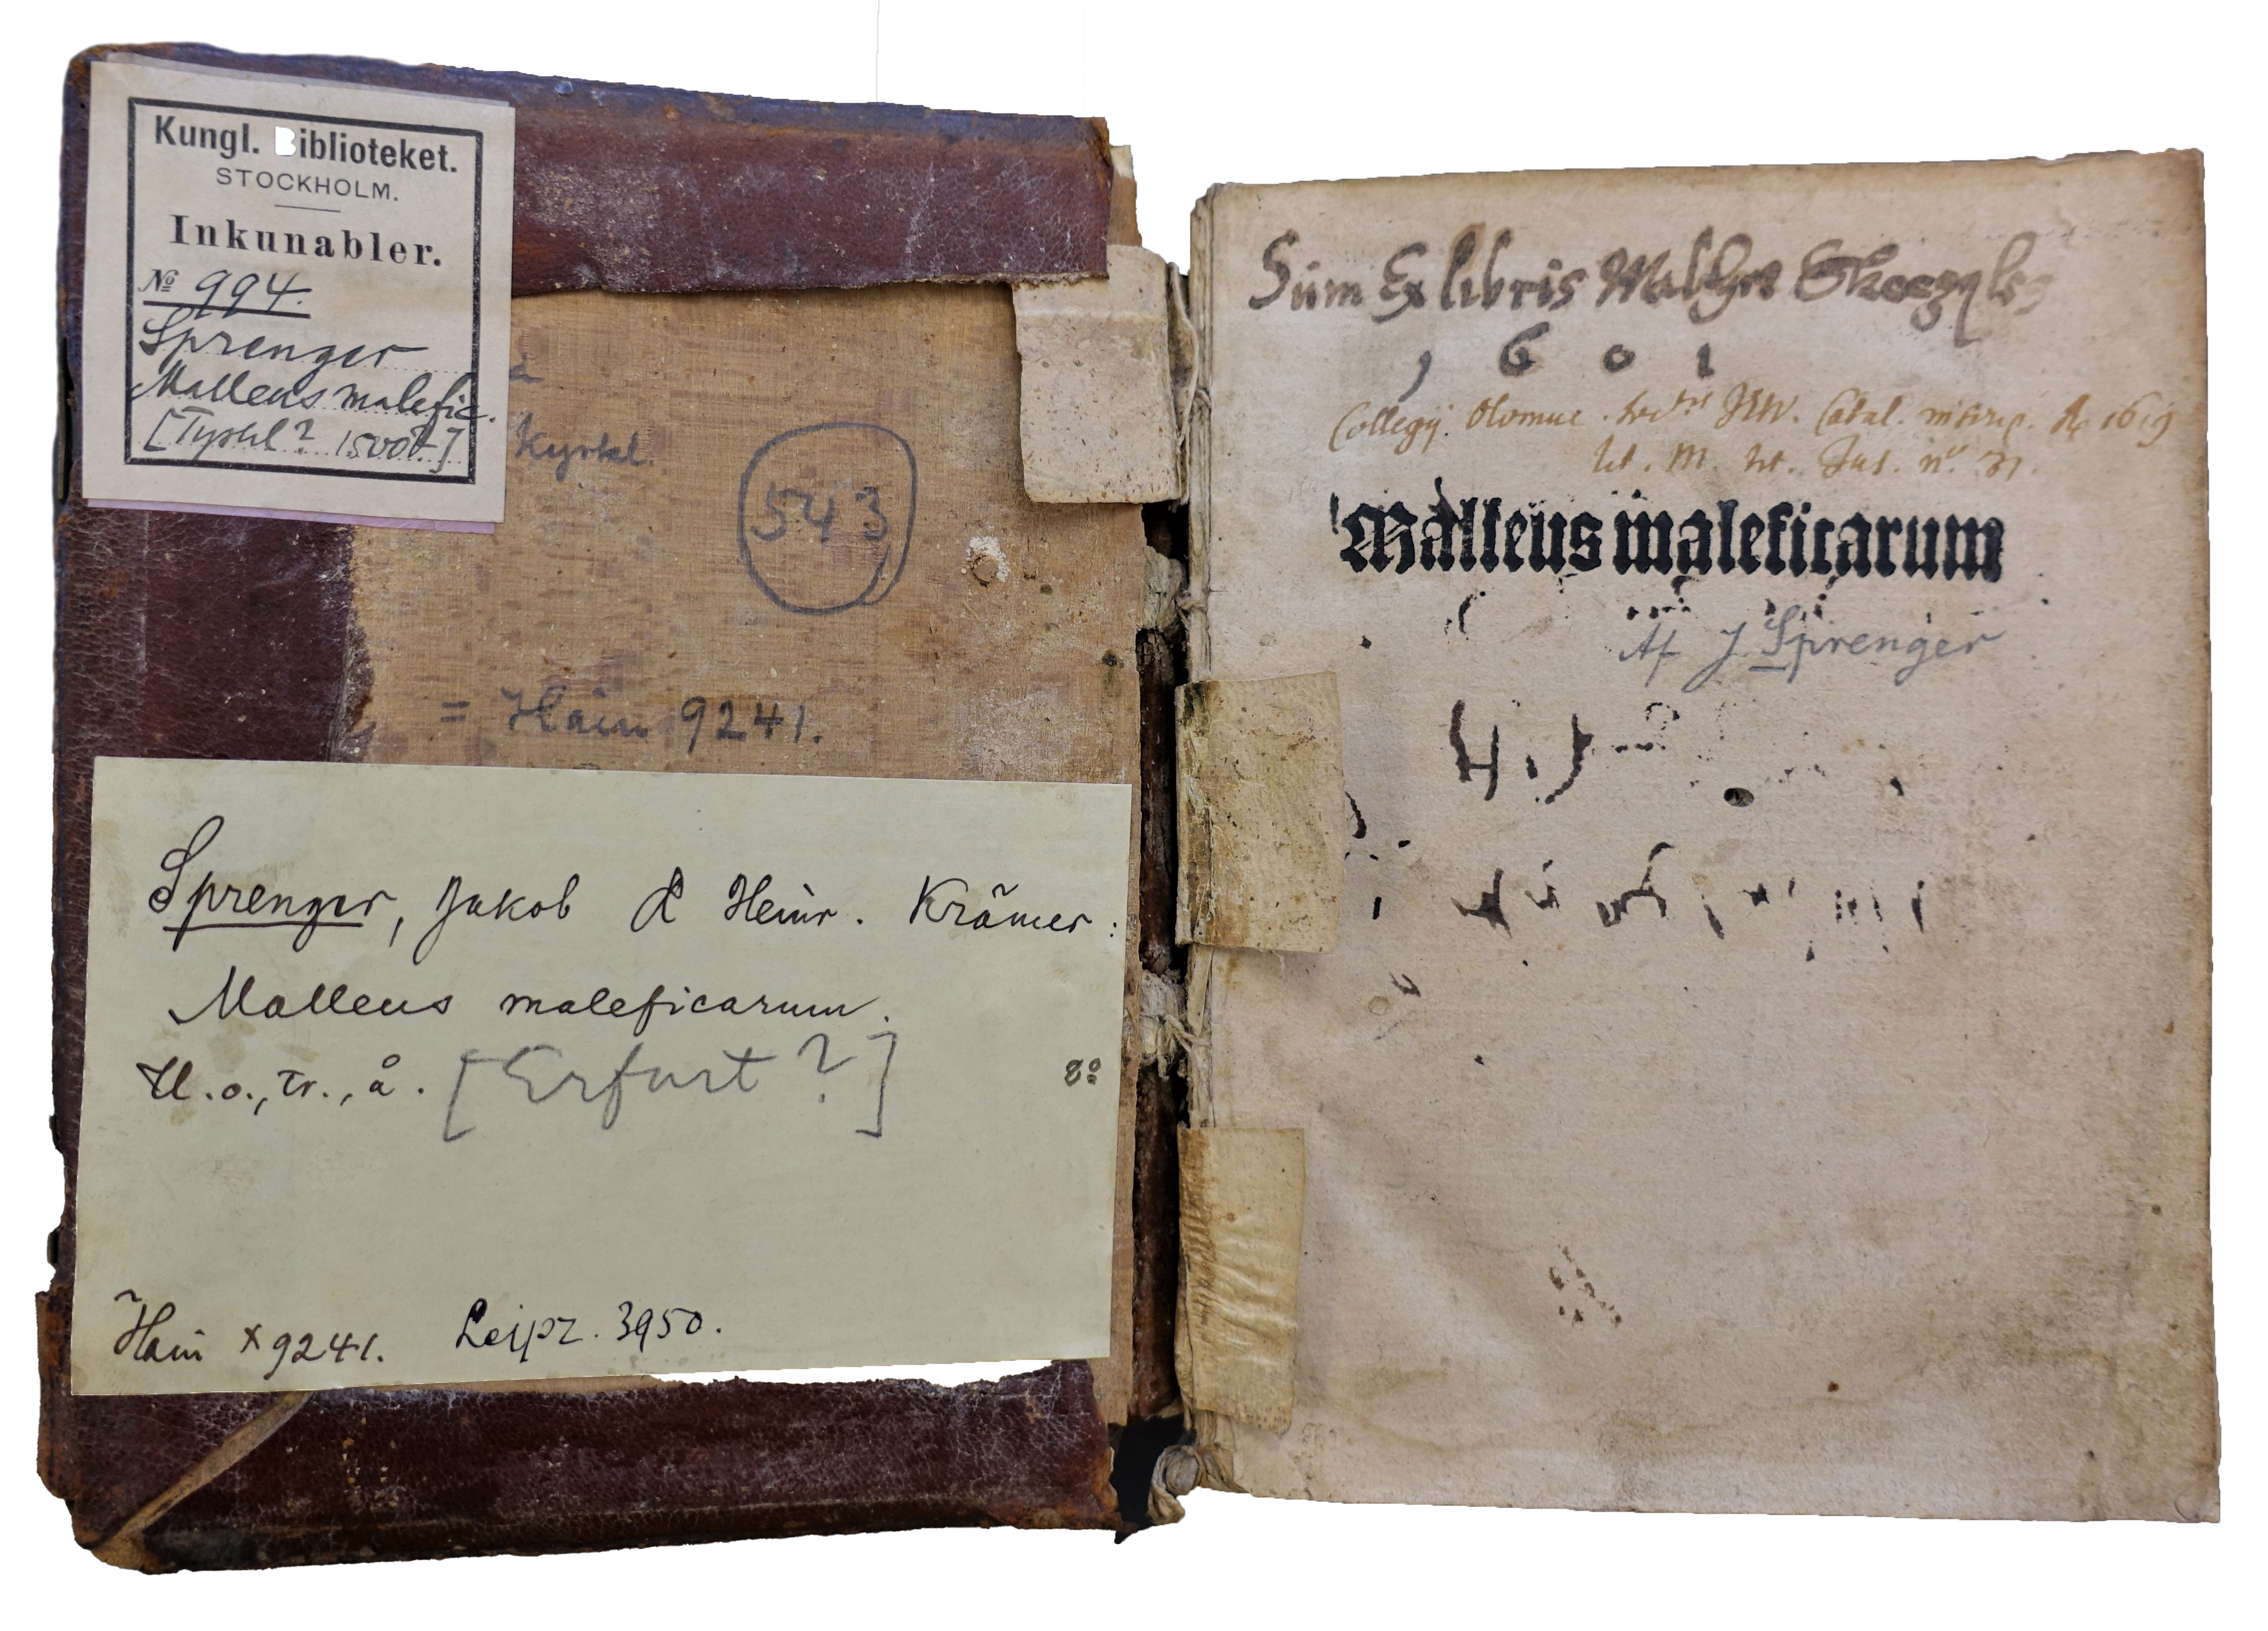 Kungl. Biblioteket.
STOCKHOLM.
Inkunabler.
№ 994.
Sprenger
Malleus malefic.
[Tyskl? 1500?]
Kyrkl.
543
= Hain 9241.
Sprenger, Jakob & Heinr. Krämer:
Malleus maleficarum.
U.o., tr., å. [Erfurt?] 8º
Hain x 9241. Leipz. 3950.
Sum Ex libris
1601
Collegij Olomuc. Catal. inscrip. 1619
lit. M. nº 31.
Malleus maleficarum
Af J Sprenger